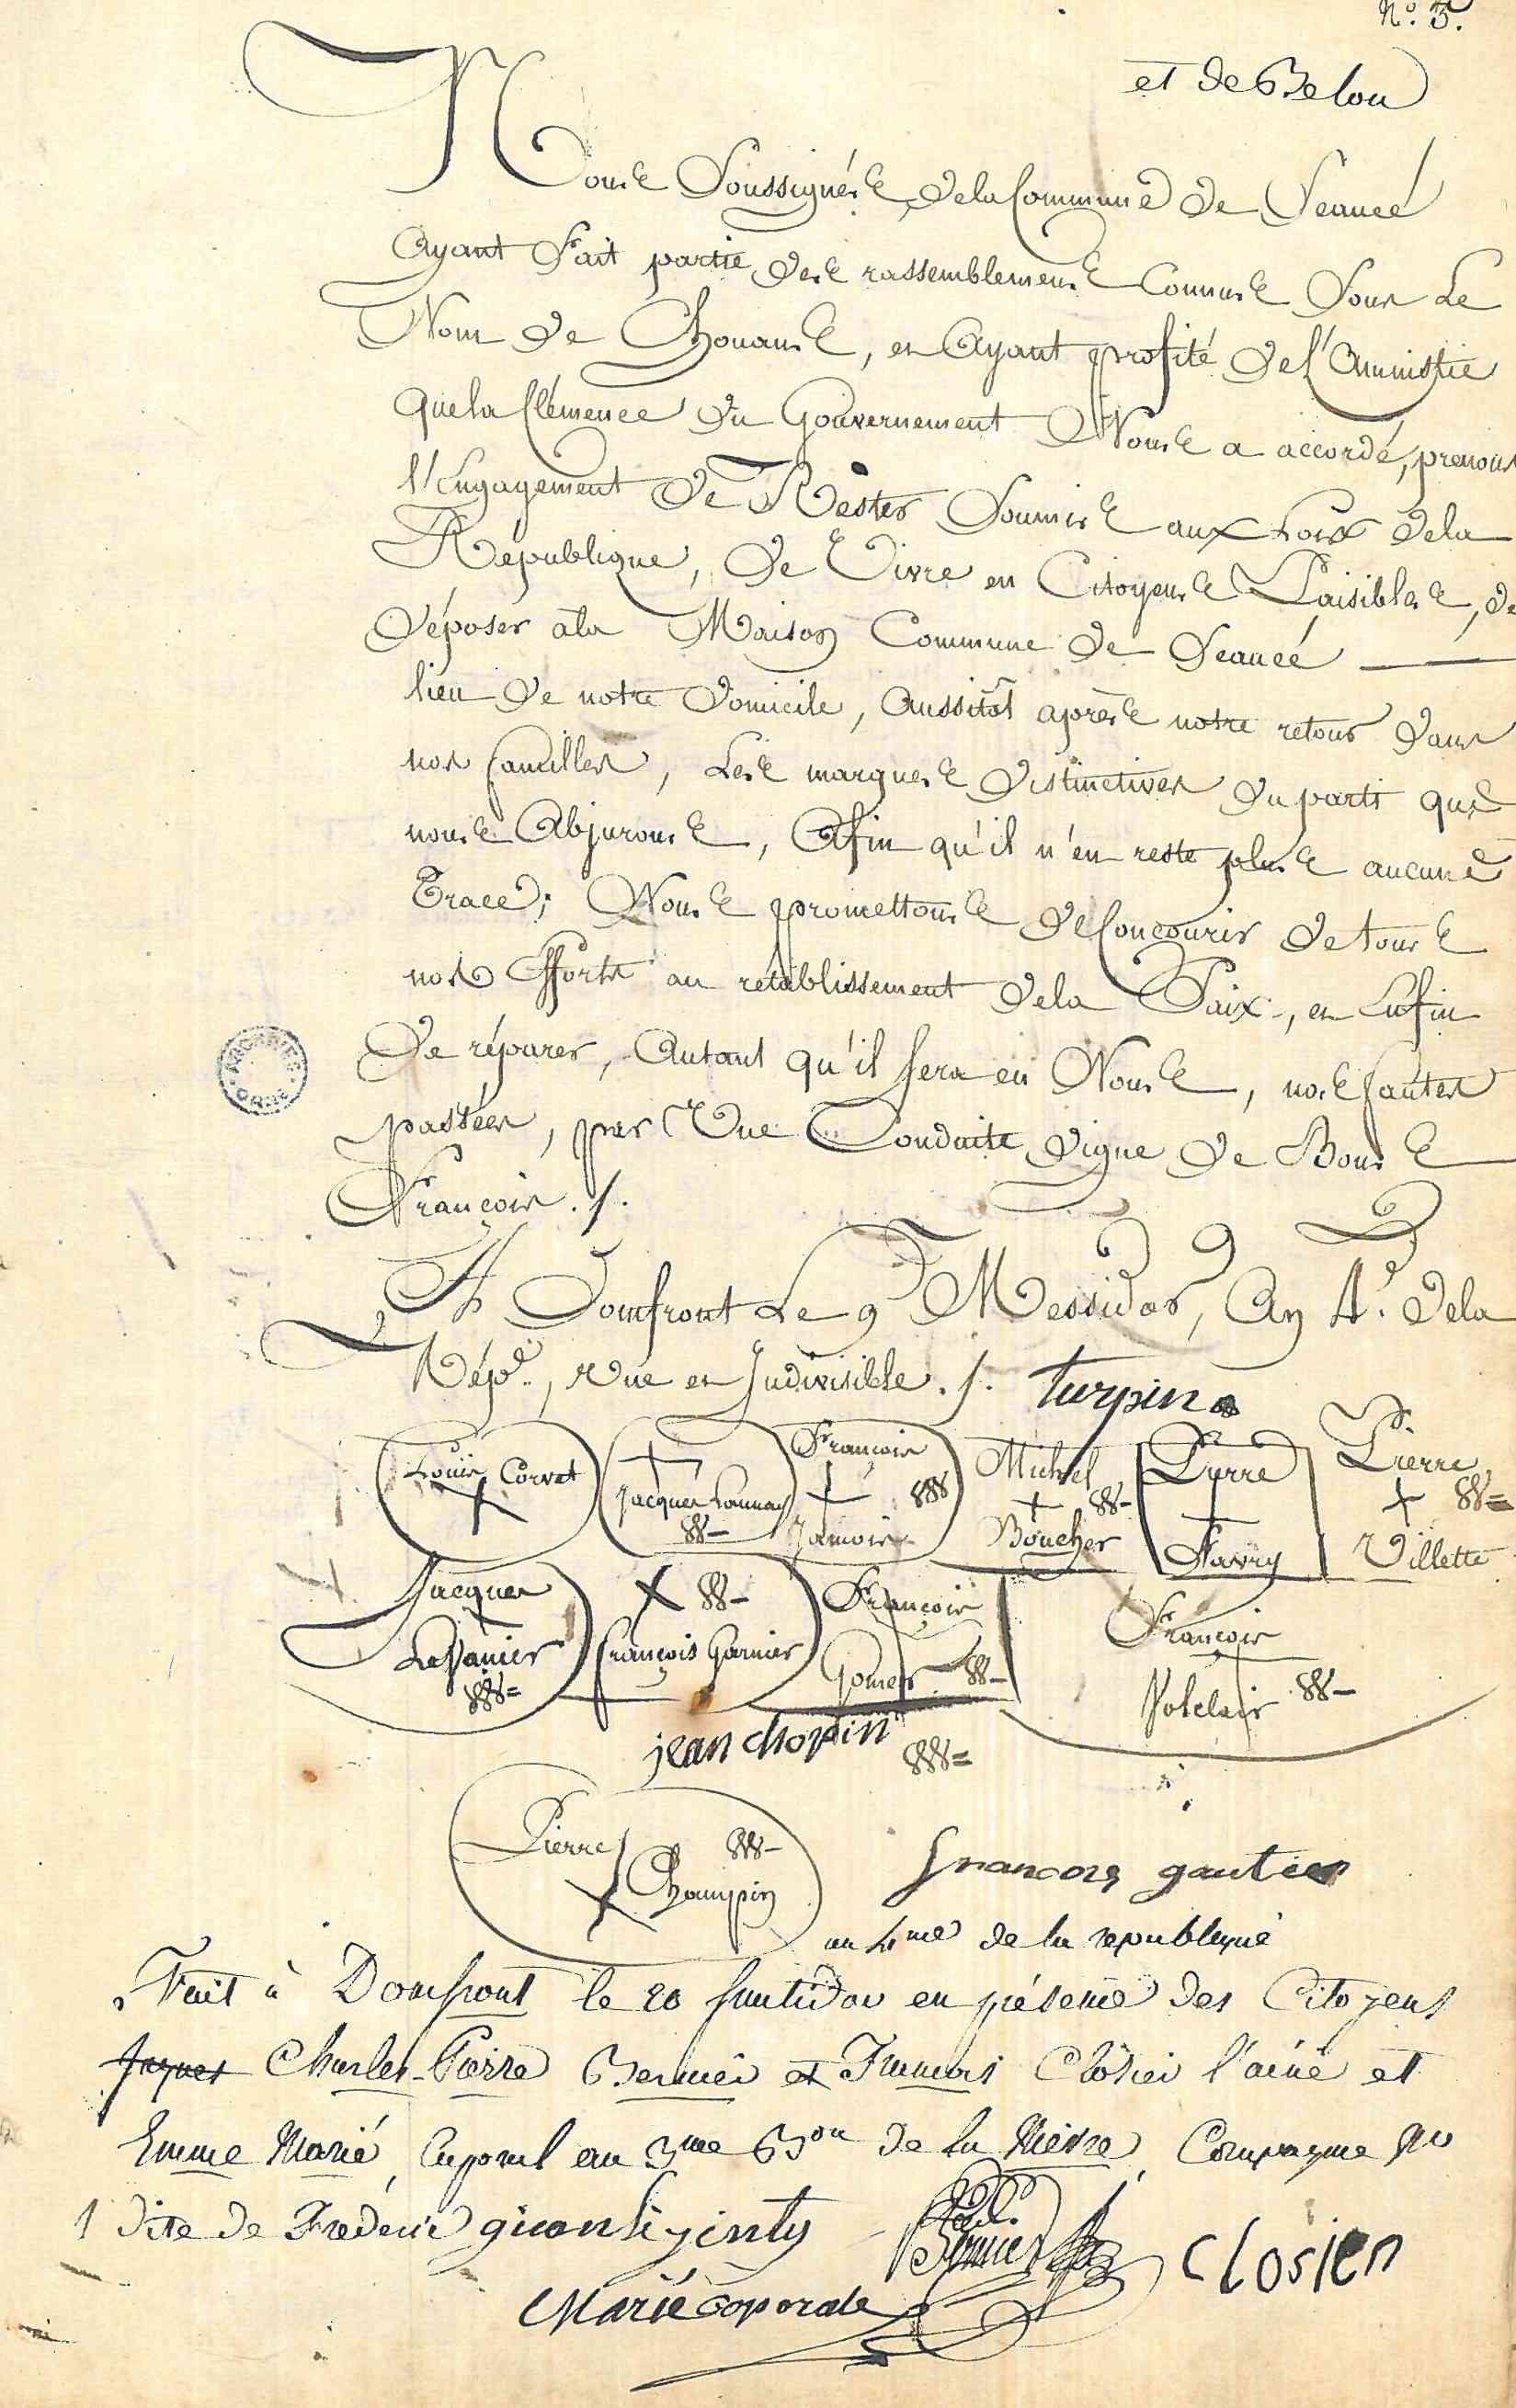 N.º 5.
et de Belou
Nous Soussignés, de la Commune de Sceaucé
Ayant Fait partie des rassemblemens Connus Sous Le
Nom de Chouans, et Ayant profité de l'Amnistie
que la Clémence du Gouvernement Nous a accordé, prenons
l'Engagement de Rester Soumis aux Loix de la
République, de Vivre en Citoyens Paisibles, de
déposer à la Maison Commune de Sceaucé
lieu de notre domicile, Aussitôt après notre retour dans
nos familles, Les marques distinctives du parti que
nous Abjurons, Afin qu'il n'en reste plus aucune
Trace; Nous promettons de Concourir de tous
nos Efforts au rétablissement de la Paix, et Enfin
De réparer, Autant qu'il Sera en Nous, nos fautes
passées, par Une Conduite digne de Bons
François ./.
A Domfront Le 9 Messidor, An 4.e de la
Rép.e, Une et Indivisible ./. turpin
Louis Corvet Jacques Launay François Jamois Michel Boucher Pierre Favry Pierre Villette
Jacques François Garnier François Gomer François
jean chopin
Pierre Champin francois gautier
an 4me de la republique
Fait à Domfront le 20 fructidor en présence des Citoyens
Jaques Charles-Pierre Bernier et Francois Closier l'ainé et
Emme Marié, Caporal au 3me Bon de la Nievre, Compagnie No
1 dite de Frederic
Bernier Closien
Marié caporale